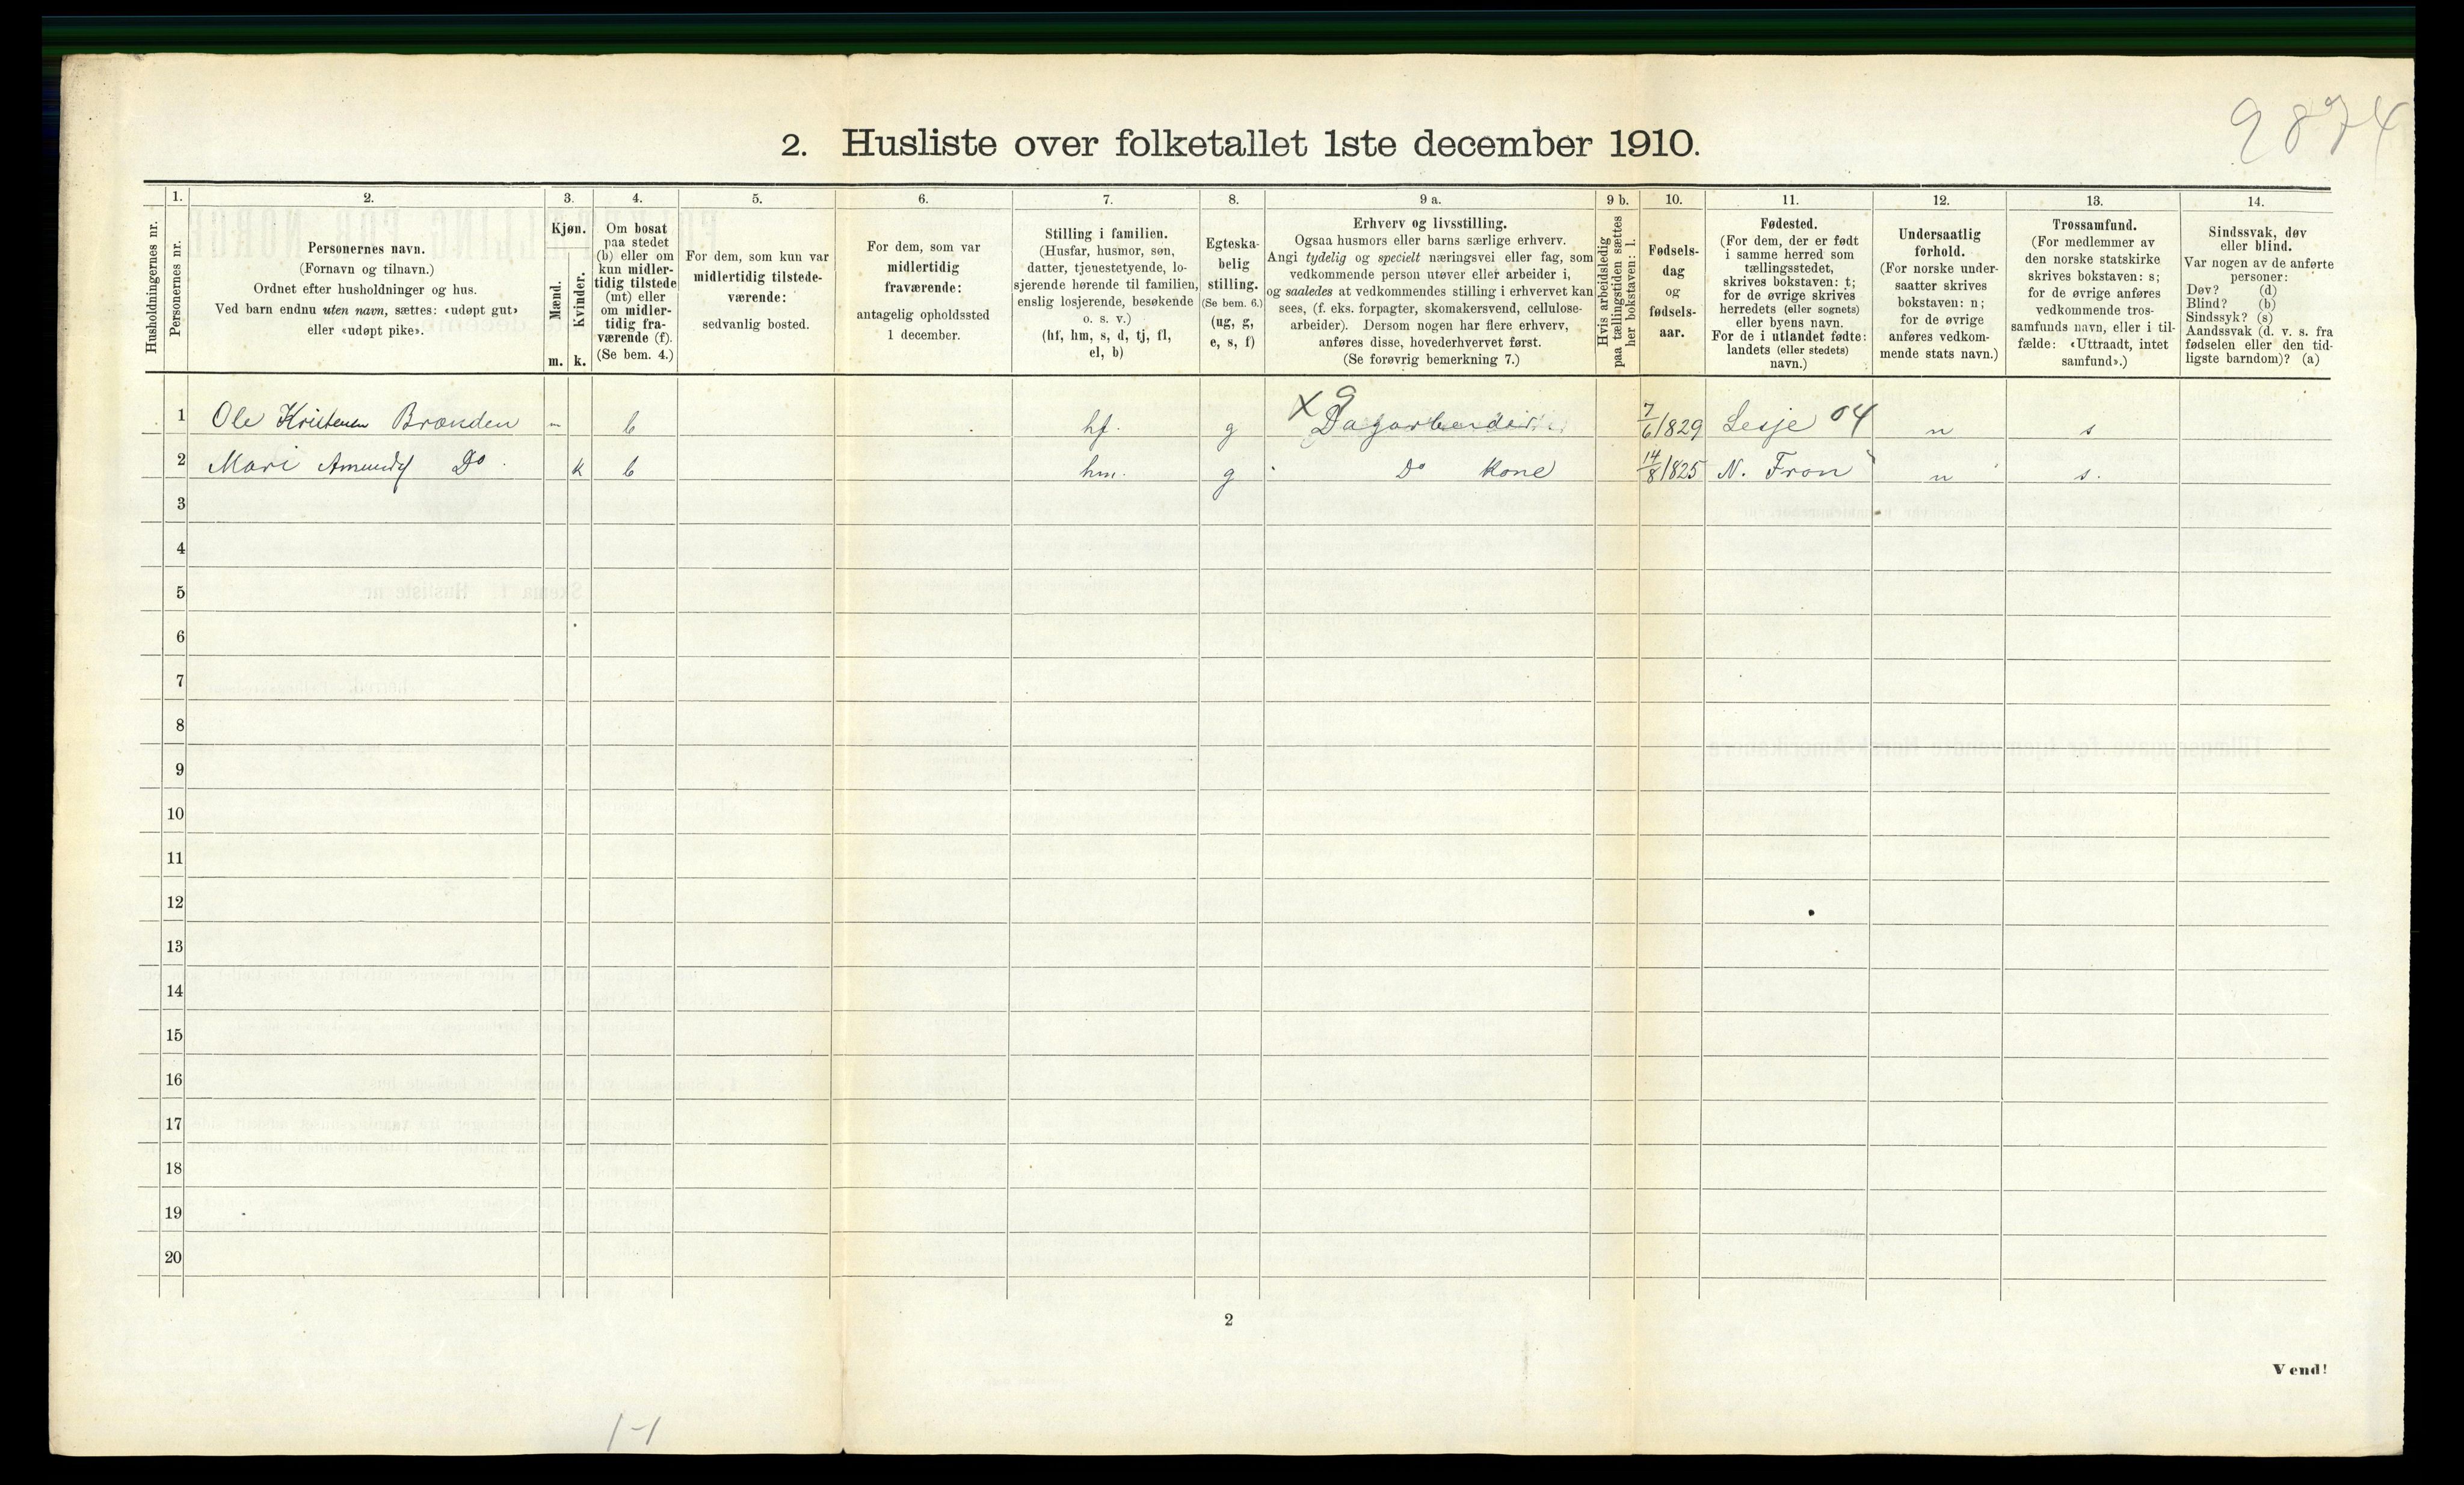 9874
2. Husliste over folketallet 1ste december 1910.
Husholdningernes nr.
1.
Personernes nr.
2.
Personernes navn.
(Fornavn og tilnavn.)
Ordnet efter husholdninger og hus.
Ved barn endnu uten navn, sættes: «udøpt gut»
eller «udøpt pike».
3.
Kjøn.
Mænd.
Kvinder.
m. k.
4.
Om bosat
paa stedet
(b) eller om
kun midler-
tidig tilstede
(mt) eller
om midler-
tidig fra-
værende (f).
(Se bem. 4.)
5.
For dem, som kun var
midlertidig tilstede-
værende:
sedvanlig bosted.
6.
For dem, som var
midlertidig
fraværende:
antagelig opholdssted
1 december.
7.
Stilling i familien.
(Husfar, husmor, søn,
datter, tjenestetyende, lo-
sjerende hørende til familien,
enslig losjerende, besøkende
o. s. v.)
(hf, hm, s, d, tj, fl,
el, b)
8.
Egteska-
belig
stilling.
(Se bem. 6.)
(ug, g,
e, s, f)
9 a.
Erhverv og livsstilling.
Ogsaa husmors eller barns særlige erhverv.
Angi tydelig og specielt næringsvei eller fag, som
vedkommende person utøver eller arbeider i,
og saaledes at vedkommendes stilling i erhvervet kan
sees, (f. eks. forpagter, skomakersvend, cellulose-
arbeider). Dersom nogen har flere erhverv,
anføres disse, hovederhvervet først.
(Se forøvrig bemerkning 7.)
9 b.
Hvis arbeidsledig
paa tællingstiden sættes
her bokstaven: l.
10.
Fødsels-
dag
og
fødsels-
aar.
11.
Fødested.
(For dem, der er født
i samme herred som
tællingsstedet,
skrives bokstaven: t;
for de øvrige skrives
herredets (eller sognets)
eller byens navn.
For de i utlandet fødte:
landets (eller stedets)
navn.)
12.
Undersaatlig
forhold.
(For norske under-
saatter skrives
bokstaven: n;
for de øvrige
anføres vedkom-
mende stats navn.)
13.
Trossamfund.
(For medlemmer av
den norske statskirke
skrives bokstaven: s;
for de øvrige anføres
vedkommende tros-
samfunds navn, eller i til-
fælde: «Uttraadt, intet
samfund».)
14.
Sindssvak, døv
eller blind.
Var nogen av de anførte
personer:
Døv? (d)
Blind? (b)
Sindssyk? (s)
Aandssvak (d. v. s. fra
fødselen eller den tid-
ligste barndom)? (a)
X 9
1 Ole Kristensen Brænden m b hf. g Dagarbeider 7/6 1829 Lesje 04 n s
2 Mari Amundsd Do. k b hm. g Do Kone 14/8 1825 N. Fron n s.
3
4
5
6
7
8
9
10
11
12
13
14
15
16
17
18
19
20
2
Vend!
1-1